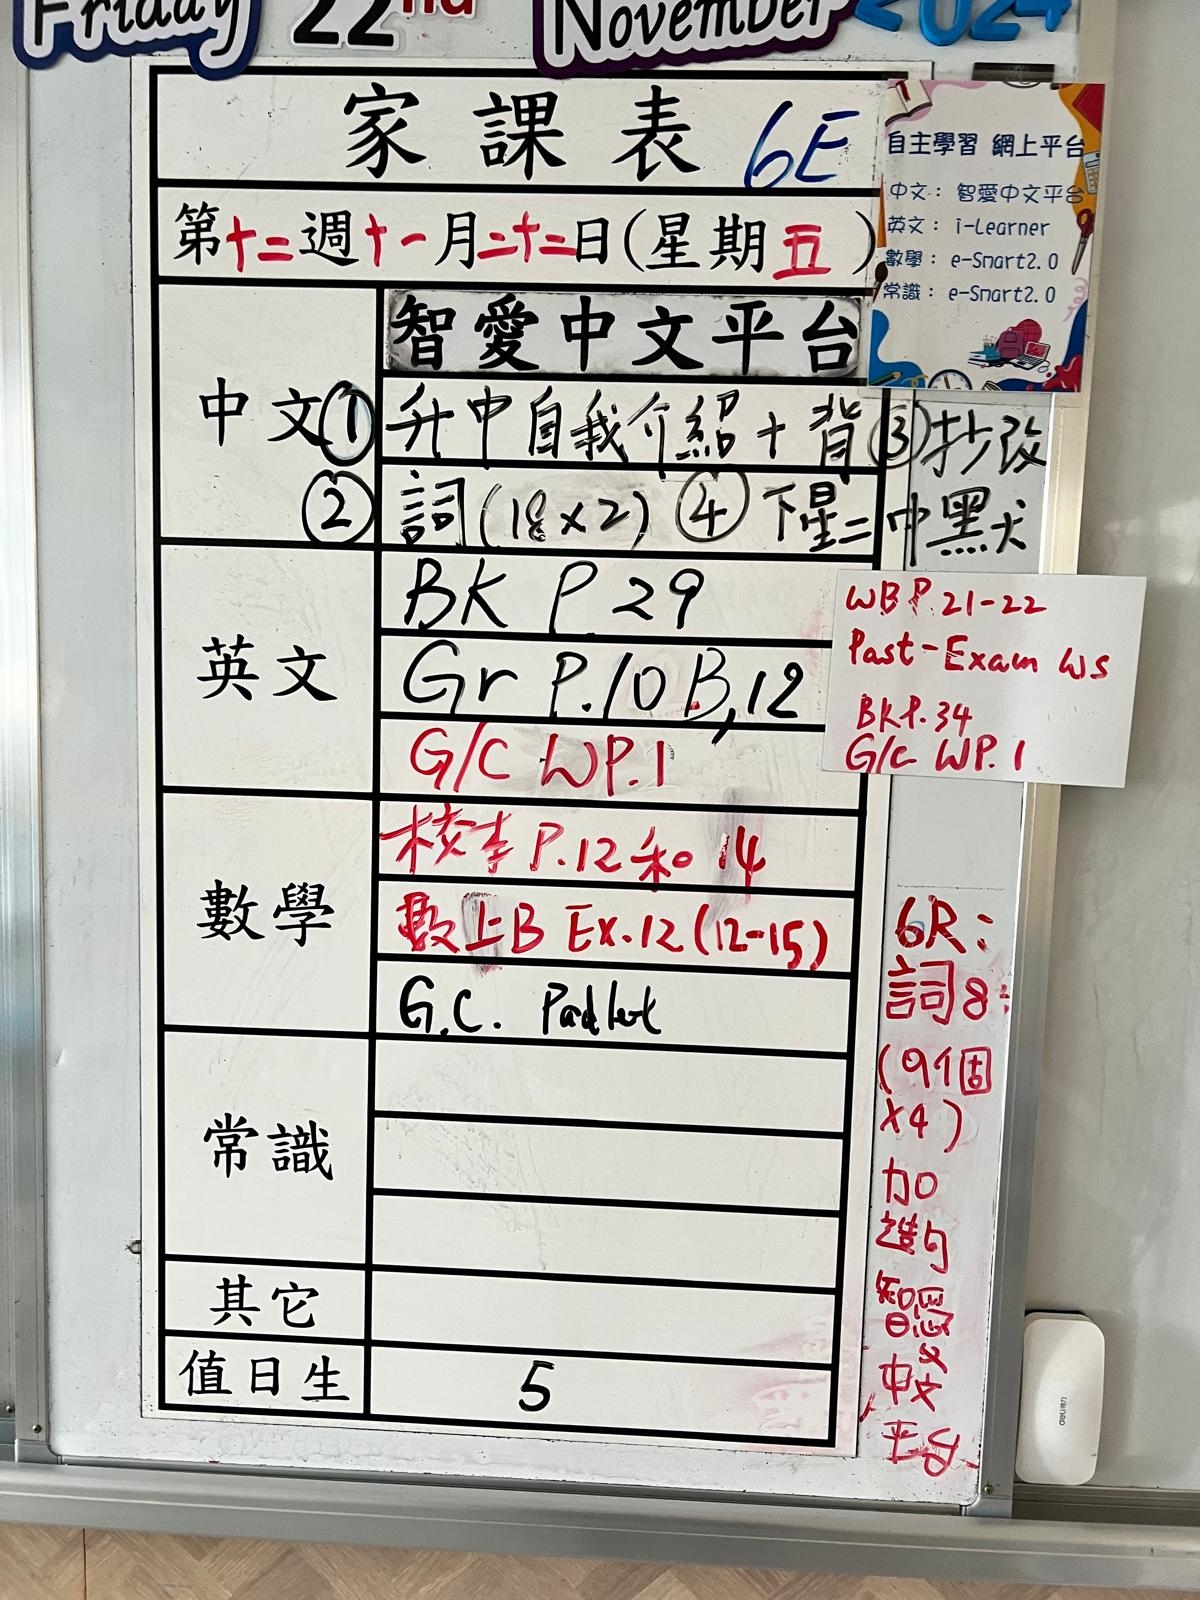 Friday 22nd November 2024
家課表 6E
第十二週十一月二十二日(星期五)
自主學習 網上平台
中文：智愛中文平台
英文：i-Learner
數學：e-Smart2.0
常識：e-Smart2.0
中文
智愛中文平台
① 升中自我介紹+背 ③抄改
② 詞(18x2) ④ 下星二中默
英文
BK P 29
Gr P.10B,12
G/C WP.1
WB P.21-22
Past-Exam WS
BK P.34
G/C WP.1
數學
校本 P.12和14
數上B Ex.12(12-15)
G.C. Padlet
常識
其它
值日生 5
6R:
詞8:
(9個
x4)
加
造句
智愛
中文
平台
deli